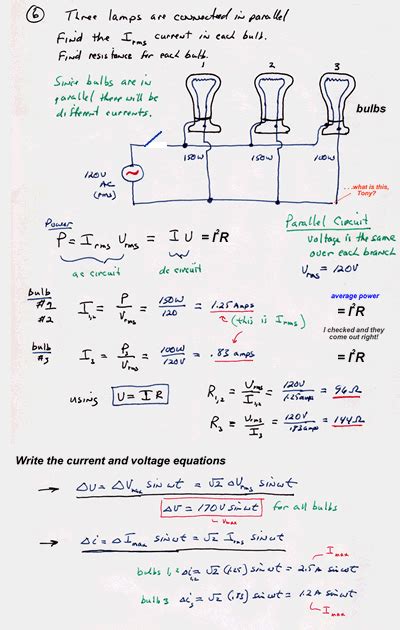 ⑥ Three lamps are connected in parallel
Find the Irms current in each bulb.
Find resistance for each bulb.
Since bulbs are in
parallel there will be
different currents.
1 2 3
bulbs
150W 150W 100W
120V
AC
(rms)
...what is this,
Tony?
Power
P = Irms Urms = I U = I²R
ac circuit dc circuit
Parallel Circuit
voltage is the same
over each branch
Urms = 120V
bulb
#1
#2
I1,2 = P/Vrms = 150W/120 = 1.25 Amps
(this is Irms)
average power
= I²R
I checked and they
come out right!
bulb
#3
I3 = P3/Vrms = 100W/120V = .83 amps
= I²R
using U = I R
R1,2 = Urms/I1,2 = 120V/1.25amps = 96Ω
R3 = Urms/I3 = 120V/.83amps = 144Ω
Write the current and voltage equations
→ ΔU = ΔVmax sin ωt = √2 ΔUrms sin ωt
ΔU = 170V sin ωt for all bulbs
Vmax
→ Δi = ΔImax sin ωt = √2 Irms sin ωt
Imax
bulbs 1,2 Δi1,2 = √2 (1.25) sin ωt = 2.5A sin ωt
bulb 3 Δi3 = √2 (.83) sin ωt = 1.2A sin ωt
Imax